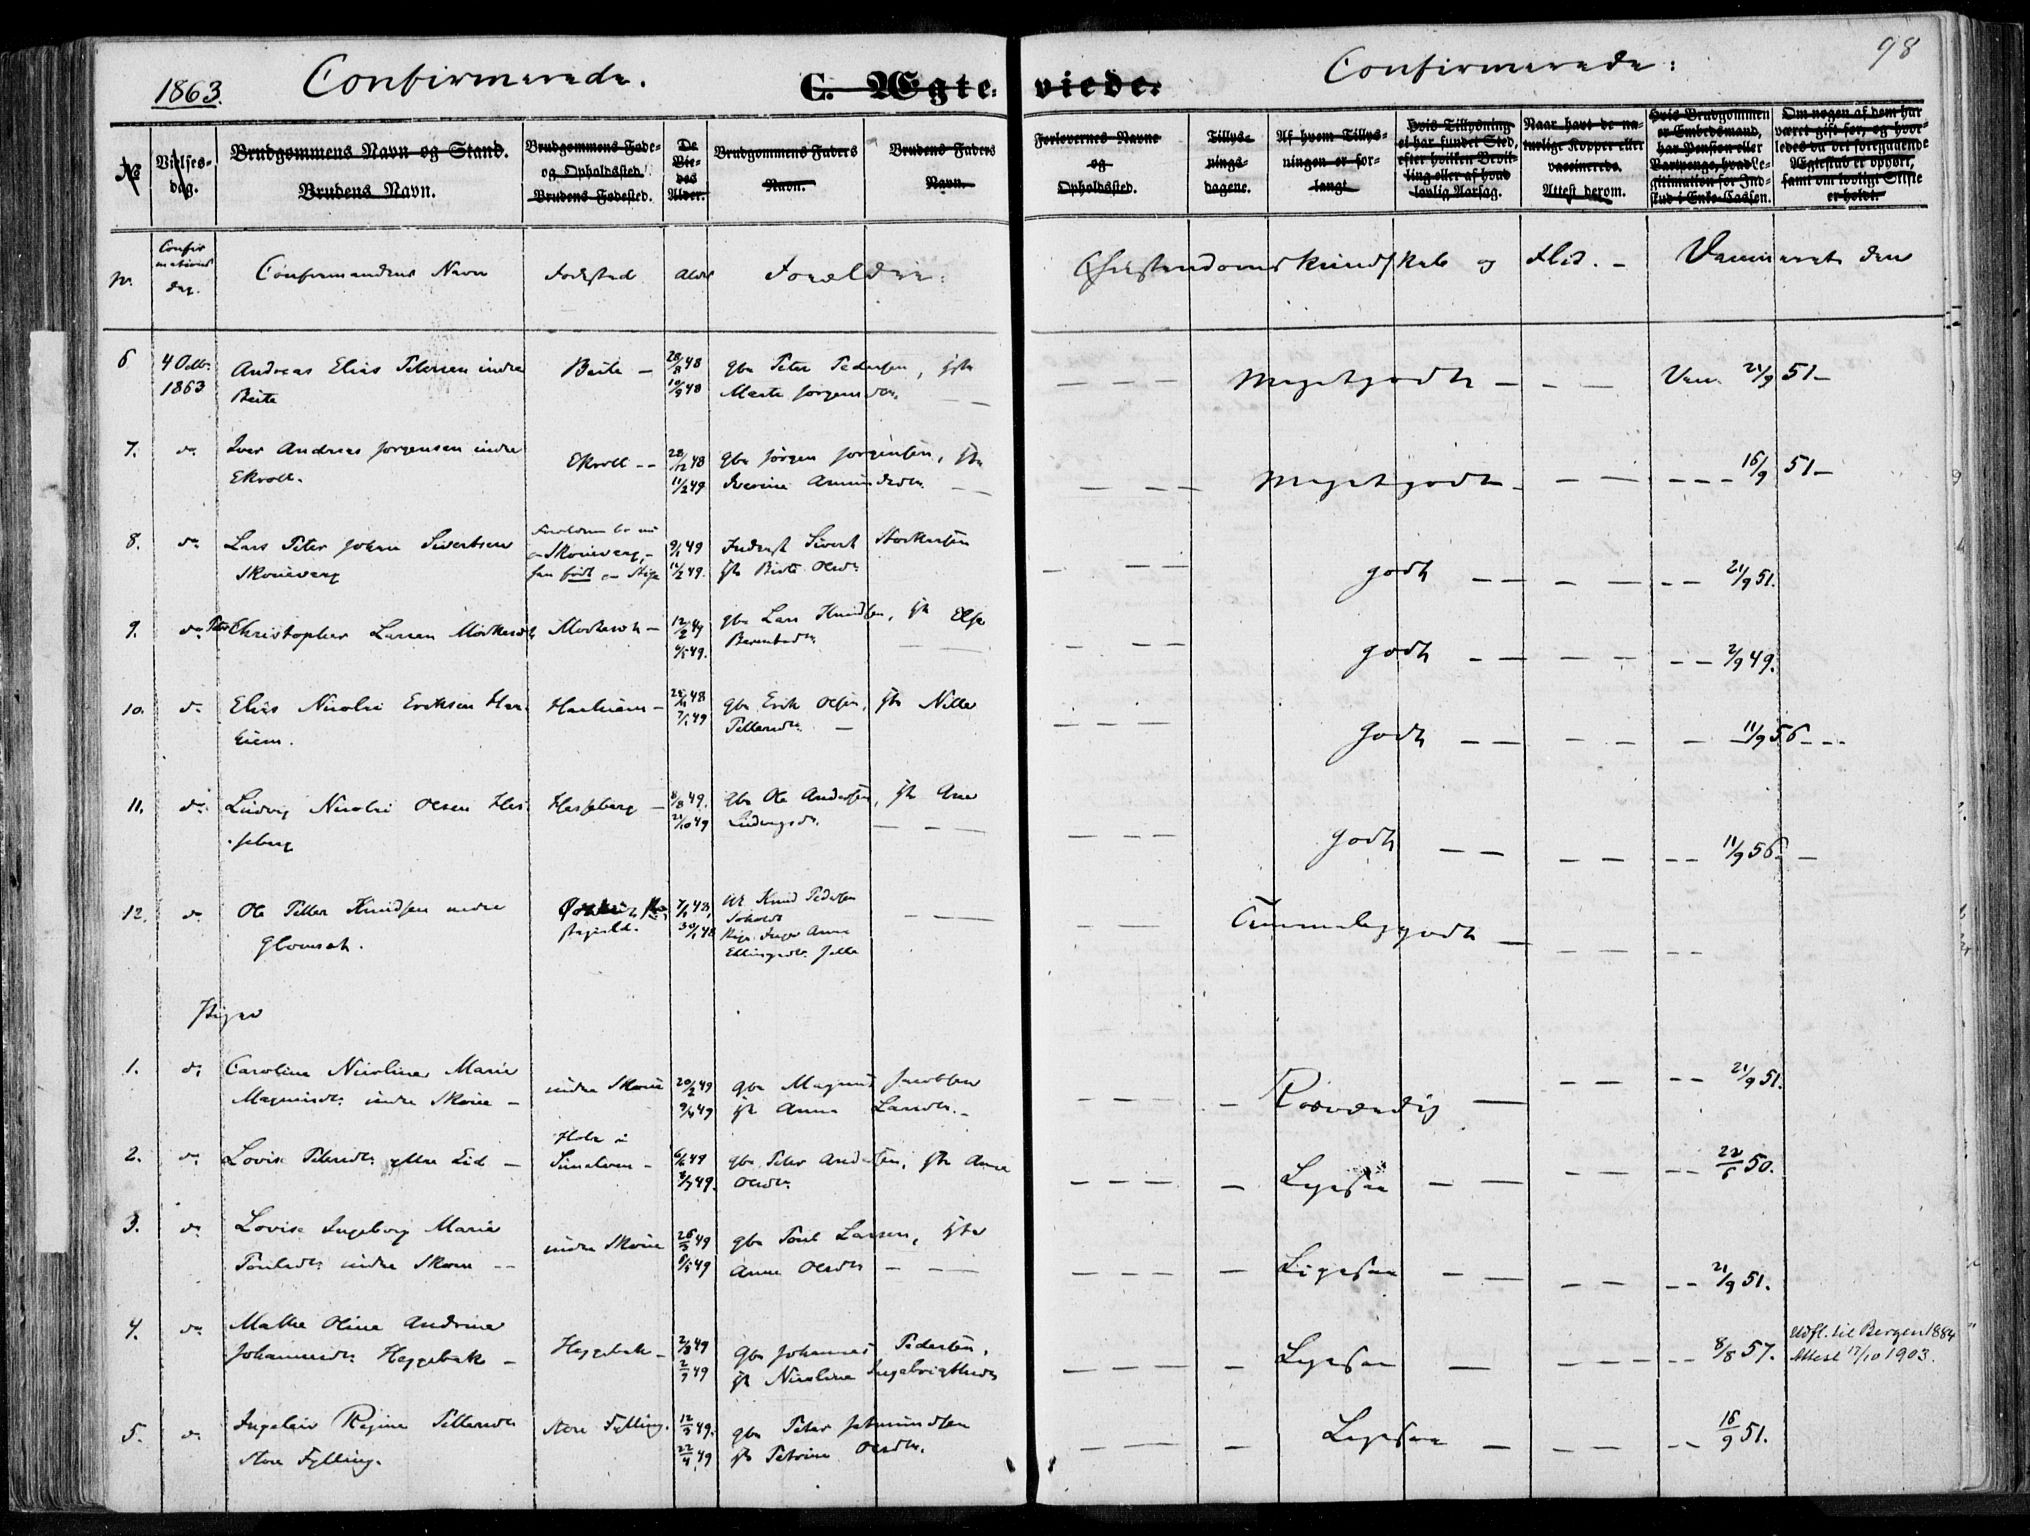 1863. Confirmerede. C. Ægteviede. Confirmerede: 98
No
Vielses-
dag.
Brudgommens Navn og Stand.
Brudens Navn.
Brudgommens Føde-
og Opholdssted.
Brudens Fødested.
De
Vie-
des
Alder.
Brudgommens Faders
Navn.
Brudens Faders
Navn.
Forlovernes Navne
og
Opholdssted.
Tillys-
nings-
dagene.
Af hvem Tillys-
ningen er for-
langt
Hvis Tillysning
ei har fundet Sted,
efter hvilken Bevil-
ling eller af hvad
lovlig Aarsag.
Naar havt de na-
turlige Kopper eller
vaccinerede.
Attest derom.
Hvis Brudgommen
er Embedsmand,
har Pension eller
Nærings, hvad Le-
gitimation for Ind-
skud i Enke-Cassen.
Om nogen af dem har
været gift før, og hvor-
ledes da det foregaaende
Ægteskab er ophørt,
samt om lovligt Skifte
er holdt.
Confir
mations
dag.
Confirmandens Navn
Fødested
Alder
Forældre:
Christendomskundskab og Flid. -
Vaccineret den
6
4 Octbr.
1863
Andreas Elias Petersen indre
Beite
Beite -
28/8 48
10/9 48
gbr Peter Pedersen, hst
Marte Jørgensdtr.
Megetgodt
Vacc. 21/9 51-
7.
do
Iver Andreas Jørgensen indre
Ekroll.
Ekroll --
28/12 48
11/2 49
gbr Jørgen Jørgensen,
Iverine Amundsdtr.
Megetgodt
16/9 51-
8.
do
Lars Peter Johan Sivertsen
Skouevæg
Skouevæg,
født
9/1 49
11/2 49.
Inderst Sivert Storkersen
Olsdtr
godt
21/9 51.
9.
do
Christopher Larsen
12/2 49
6/5 49.
gbr Lars Knudsen, Else
Berentsdtr
godt
2/9 49.
10.
do
Elias Nicolai Eriksen Har-
eiem.
Hareiem -
7/1 49
gbr Erik Olsen, Nille
Pettersdtr
godt
11/9 56
11.
do
Ludvig Nicolai Olsen Hes-
seberg
Hesseberg -
8/8 49.
21/10 49
gbr Ole Andersen, Ane
Ludvigsdtr.
godt
11/9 56
12.
do
Ole Petter Knudsen nedre
Glomset.
7/1 48,
30/1 48
Knud Pedersen
Pige Inger Anna
Ellingsdtr
Temmeliggodt
Piger
1.
do
Caroline Nicoline Marie
Magnusdtr indre Skoue -
indre Skoue
20/2 49
9/4 49
gbr Magnus Jacobsen
Anna Larsdtr.
Roesværdig
21/9 51.
2.
do
Lovise Petersdtr Eid -
6/6 49
8/7 49.
gbr Peter Andersen, Anne
Olsdtr
Ligesaa
22/6 50.
3.
do
Lovise Ingeborg Marie
Poulsdtr indre Skoue --
indre Skoue
26/3 49
6/5 49
gbr Poul Larsen,
Anne Olsdtr
Ligesaa
21/9 51.
4.
do
Mathe Oline Andrine
Johannesdtr Heggebak -
Heggebak -
2/3 49
gbr Johannes Pedersen,
Nicoline Ingebrigtsdtr
Ligesaa
8/8 57.
Udfl. til Bergen 1884
Attest 17/10 1903.
5.
do
Regine Pettersdtr
store Fylling.
store Fylling.
12/3 49.
22/4 49
gbr Peter
Petrine Olsdtr.
Ligesaa
16/9 51.